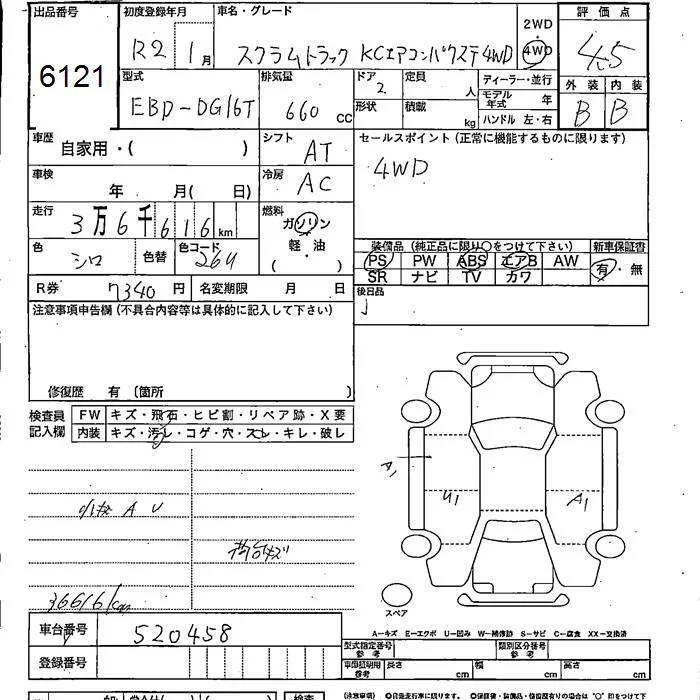 出品番号 初度登録年月 車名・グレード 2WD 評価点
6121 R2 1月 スクラムトラック KCエアコンパワステ4WD 4WD 4.5
型式 排気量 ドア 定員 ディーラー・並行 外装 内装
EBD-DG16T 660 CC 2 人 モデル年式 年 B B
形状 積載 kg ハンドル 左・右
車歴 自家用・( ) シフト AT セールスポイント(正常に機能するものに限ります)
車検 年 月( 日) 冷房 AC 4WD
走行 3万6千616km 燃料 ガソリン
軽・油
( )
色 シロ 色替 色コード 26U
装備品(純正品に限り○をつけて下さい) 新車保証書
PS PW ABS エアB AW 有・無
SR ナビ TV カワ
R券 7340円 名変期限 月 日 後日品
注意事項申告欄(不具合内容等は具体的に記入して下さい)
修復歴 有 (箇所 )
検査員記入欄 FW キズ・飛石・ヒビ割・リペア跡・X要
内装 キズ・汚レ・コゲ・穴・スレ・キレ・破レ
A1
U1 A1
小キズ A U
荷台キズ
36616km
スペア
A-キズ E-エクボ U-凹み W-補修跡 S-サビ C-腐食 XX-交換済
車台番号 520458
型式指定番号 参考 類別区分番号 参考
登録番号
車車証明用 参考 長さ cm 幅 cm 高さ cm